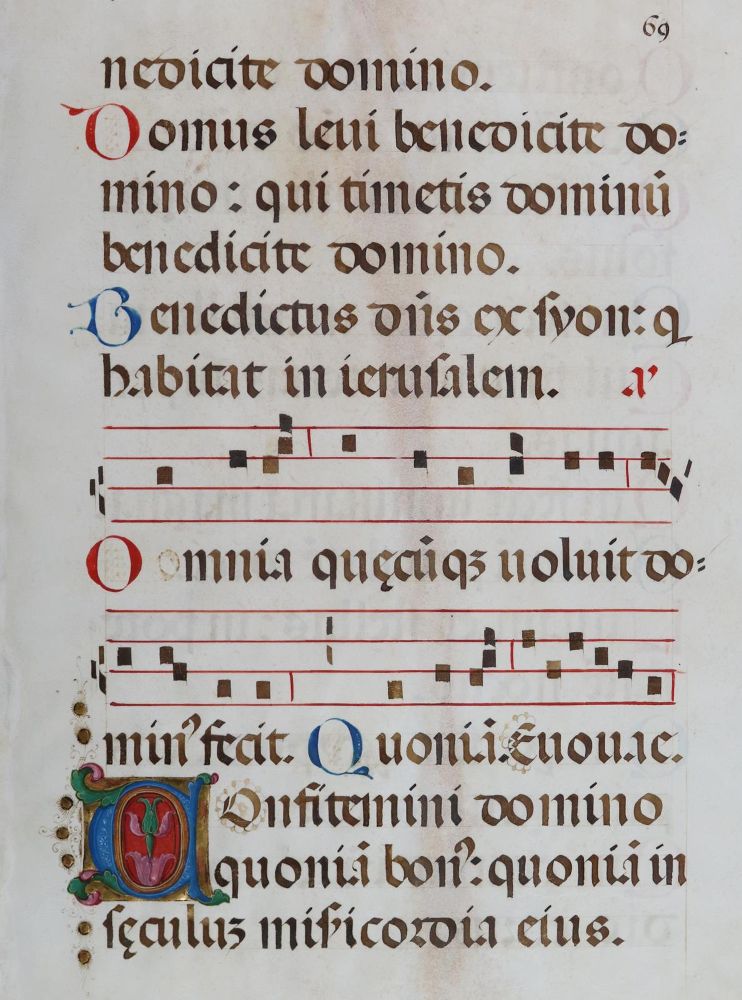 69
nedicite domino.
Domus leui benedicite do=
mino: qui timetis dominū
benedicite domino.
Benedictus dn̄s ex syon: q
habitat in ierusalem. a᷒
Omnia quęcūqꝫ uoluit do=
minꝰ fecit. Quoniā. Euouae.
Confitemini domino
quoniā bonꝰ: quoniā in
sęculuꝫ misicordia eius.